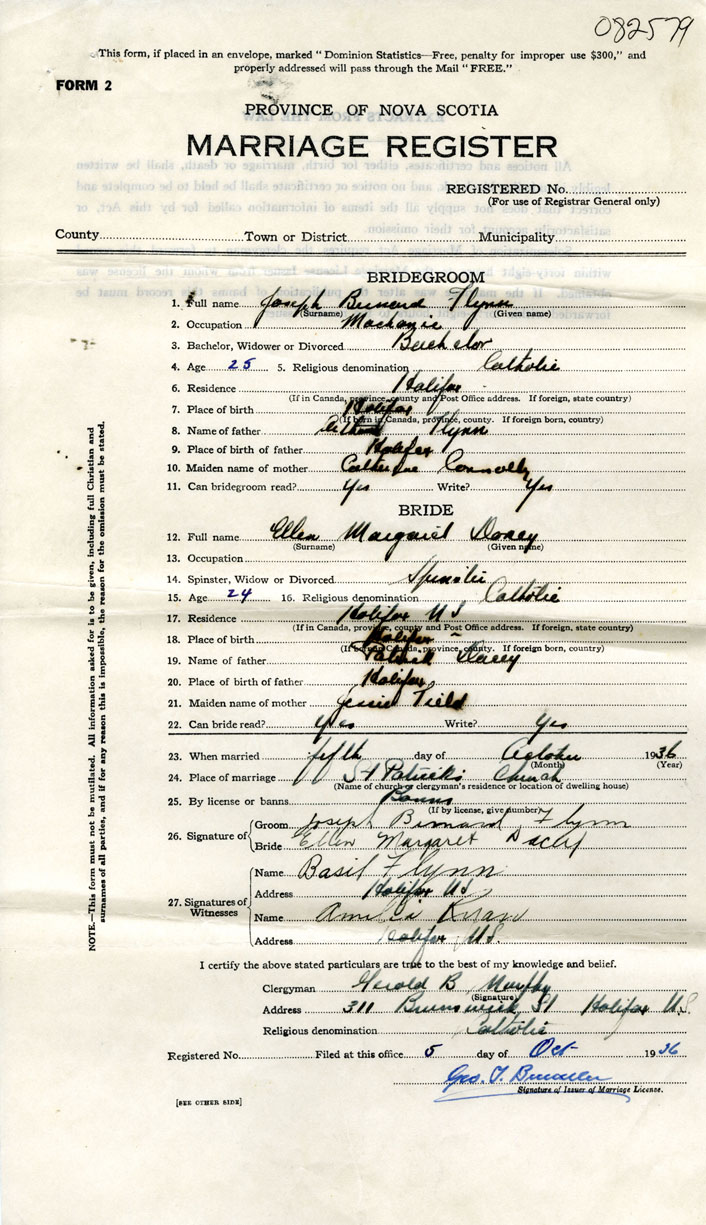 082579
This form, if placed in an envelope, marked "Dominion Statistics—Free, penalty for improper use $300," and
properly addressed will pass through the Mail "FREE."
FORM 2
PROVINCE OF NOVA SCOTIA
MARRIAGE REGISTER
REGISTERED No.
(For use of Registrar General only)
County Town or District Municipality
BRIDEGROOM
1. Full name Joseph Bernard Flynn
(Surname) (Given name)
2. Occupation
3. Bachelor, Widower or Divorced Bachelor
4. Age 25 5. Religious denomination Catholic
6. Residence Halifax
(If in Canada, province, county and Post Office address. If foreign, state country)
7. Place of birth Halifax
(If born in Canada, province, county. If foreign born, country)
8. Name of father Arthur Flynn
9. Place of birth of father Halifax
10. Maiden name of mother Catherine Connolly
11. Can bridegroom read? Yes Write? Yes
BRIDE
12. Full name Ellen Margaret Dacey
(Surname) (Given name)
13. Occupation
14. Spinster, Widow or Divorced Spinster
15. Age 24 16. Religious denomination Catholic
17. Residence Halifax N S
(If in Canada, province, county and Post Office address. If foreign, state country)
18. Place of birth Halifax
(If born in Canada, province, county. If foreign born, country)
19. Name of father Patrick Dacey
20. Place of birth of father Halifax
21. Maiden name of mother Jessie Field
22. Can bride read? Yes Write? Yes
23. When married fifth day of October 1936
(Month) (Year)
24. Place of marriage St Patrick's Church
(Name of church or clergyman's residence or location of dwelling house)
25. By license or banns Banns
(If by license, give number)
26. Signature of Groom Joseph Bernard Flynn
Bride Ellen Margaret Dacey
27. Signatures of Witnesses
Name Basil Flynn
Address Halifax N S
Name Amelia
Address Halifax N.S.
I certify the above stated particulars are true to the best of my knowledge and belief.
Clergyman Gerald B Murphy
(Signature)
Address 311 Brunswick St Halifax N.S.
Religious denomination Catholic
Registered No. Filed at this office 5 day of Oct 1936
Geo. T.
Signature of Issuer of Marriage License.
[SEE OTHER SIDE]
NOTE.—This form must not be mutilated. All information asked for is to be given, including full Christian and
surnames of all parties, and if for any reason this is impossible, the reason for the omission must be stated.